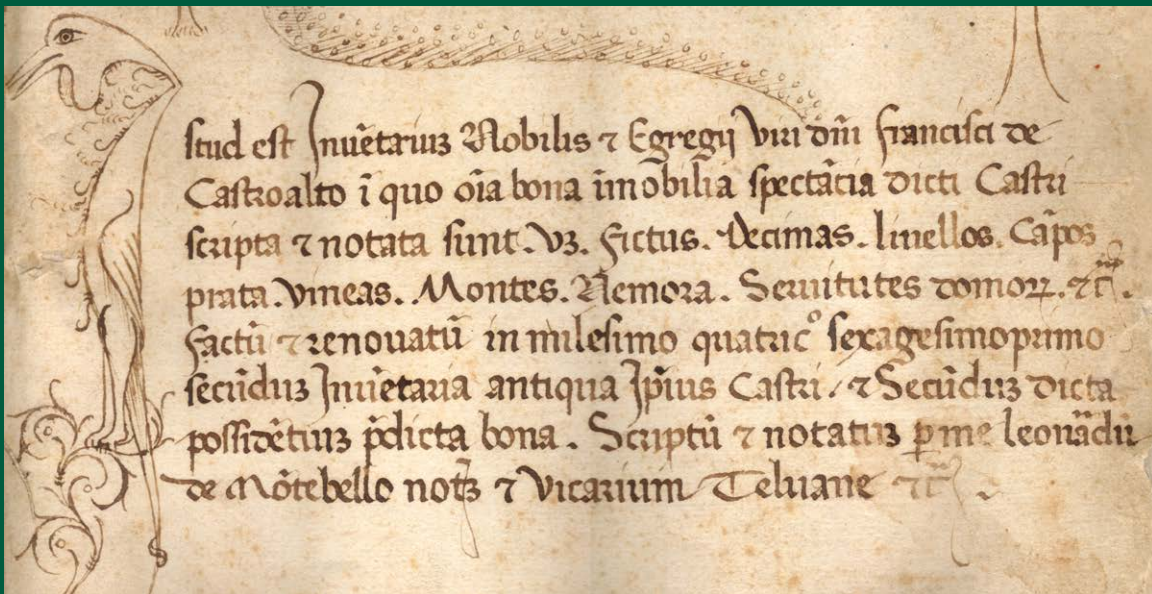 Istud est Inuētariuȝ Nobilis ⁊ Egregij Viri dn̄i francisci de
Castroalto ī quo oīa bona īmōbilīa spectātia dicti Castri
scripta ⁊ notata sunt. Vȝ. fictus. Decimas. liuellos. Cāpos
prata. Vineas. Montes. Nemora. Seruitutes domoꝝ. ⁊c̄.
factū ⁊ renouatū in milesimo quatricº sexagesimoprimo
secūduȝ Inuētaria antiqua Ip̄ius Castri / ⁊ Secūduȝ dicta
possidētiuȝ p̄dicta bona. Scriptū ⁊ notatuȝ ꝑ me leonādū
de Mōtebello notȝ ⁊ Vicarium Teluane ⁊c̄.